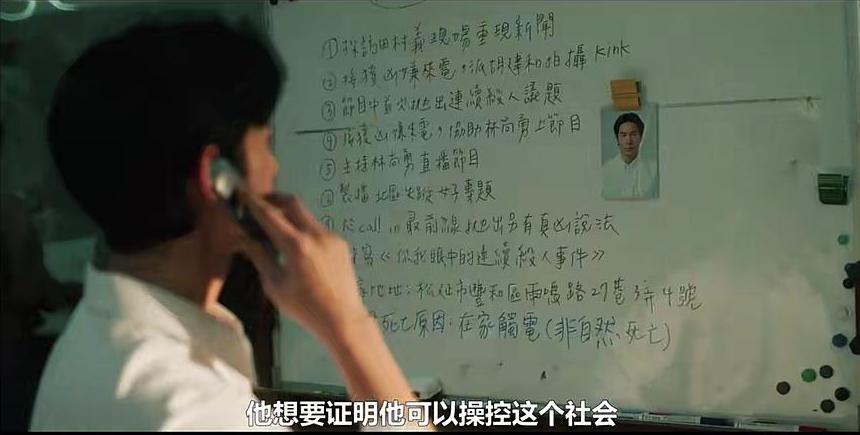 ①採訪田村義現場重現新聞
②接獲凶嫌來電,派胡建和拍攝 Kink
③節目中首次拋出連續殺人議題
④接獲凶嫌來電,協助林尚勇上節目
⑤主持林尚勇直播節目
⑥製播北區失蹤女子專題
於call in最前線拋出另有真凶說法
《你我眼中的連續殺人事件》
地址:松仕市豐和區雨鳴路27巷3弄4號
死亡原因:在家觸電(非自然死亡)
他想要证明他可以操控这个社会